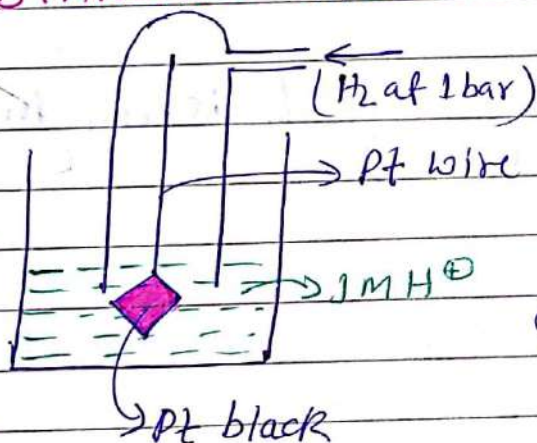 (H₂ at 1 bar)
Pt wire
1 M H⊕
Pt black